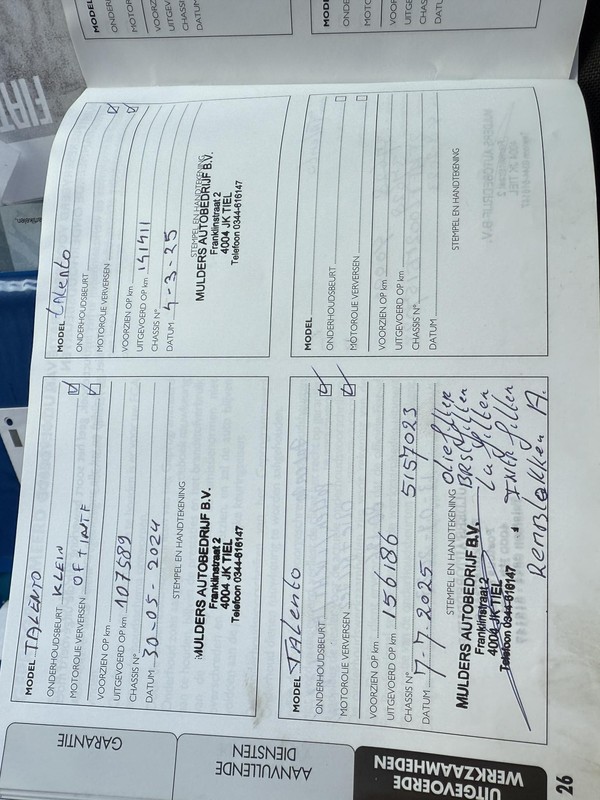 FIAT
MODEL
MODEL
MODEL TALENTO
ONDERHOUDSBEURT KLEIN
MOTOROLIE VERVERSEN
VOORZIEN OP km
UITGEVOERD OP km 107589
CHASSIS N°
DATUM 30-05-2024
STEMPEL EN HANDTEKENING
MULDERS AUTOBEDRIJF B.V.
Franklinstraat 2
4004 JK TIEL
Telefoon 0344-616147
MODEL talento
ONDERHOUDSBEURT
MOTOROLIE VERVERSEN
VOORZIEN OP km
UITGEVOERD OP km 141411
CHASSIS N°
DATUM 4-3-25
STEMPEL EN HANDTEKENING
MULDERS AUTOBEDRIJF B.V.
Franklinstraat 2
4004 JK TIEL
Telefoon 0344-616147
MODEL TALento
ONDERHOUDSBEURT
MOTOROLIE VERVERSEN
VOORZIEN OP km
UITGEVOERD OP km 156186
CHASSIS N° 5157023
DATUM 7-7-2025
STEMPEL EN HANDTEKENING
MULDERS AUTOBEDRIJF B.V.
Franklinstraat 2
4004 JK TIEL
Telefoon 0344-616147
Remblokken A.
MODEL
ONDERHOUDSBEURT
MOTOROLIE VERVERSEN
VOORZIEN OP km
UITGEVOERD OP km
CHASSIS N°
DATUM
STEMPEL EN HANDTEKENING
GARANTIE
AANVULLENDE
DIENSTEN
UITGEVOERDE
WERKZAAMHEDEN
26